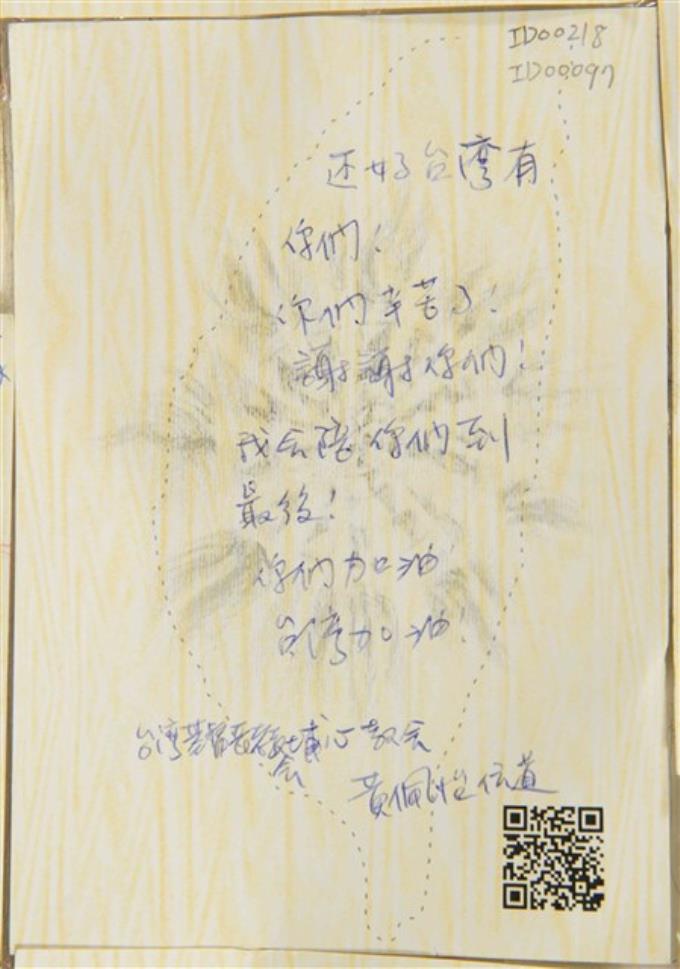 ID00218
ID00097
还好台湾有
你們！
你們辛苦了！
謝謝你們！
我会陪你們到
最後！
你們加油
台湾加油！
台湾基督長老教会
埔心教会
黃佩 传道